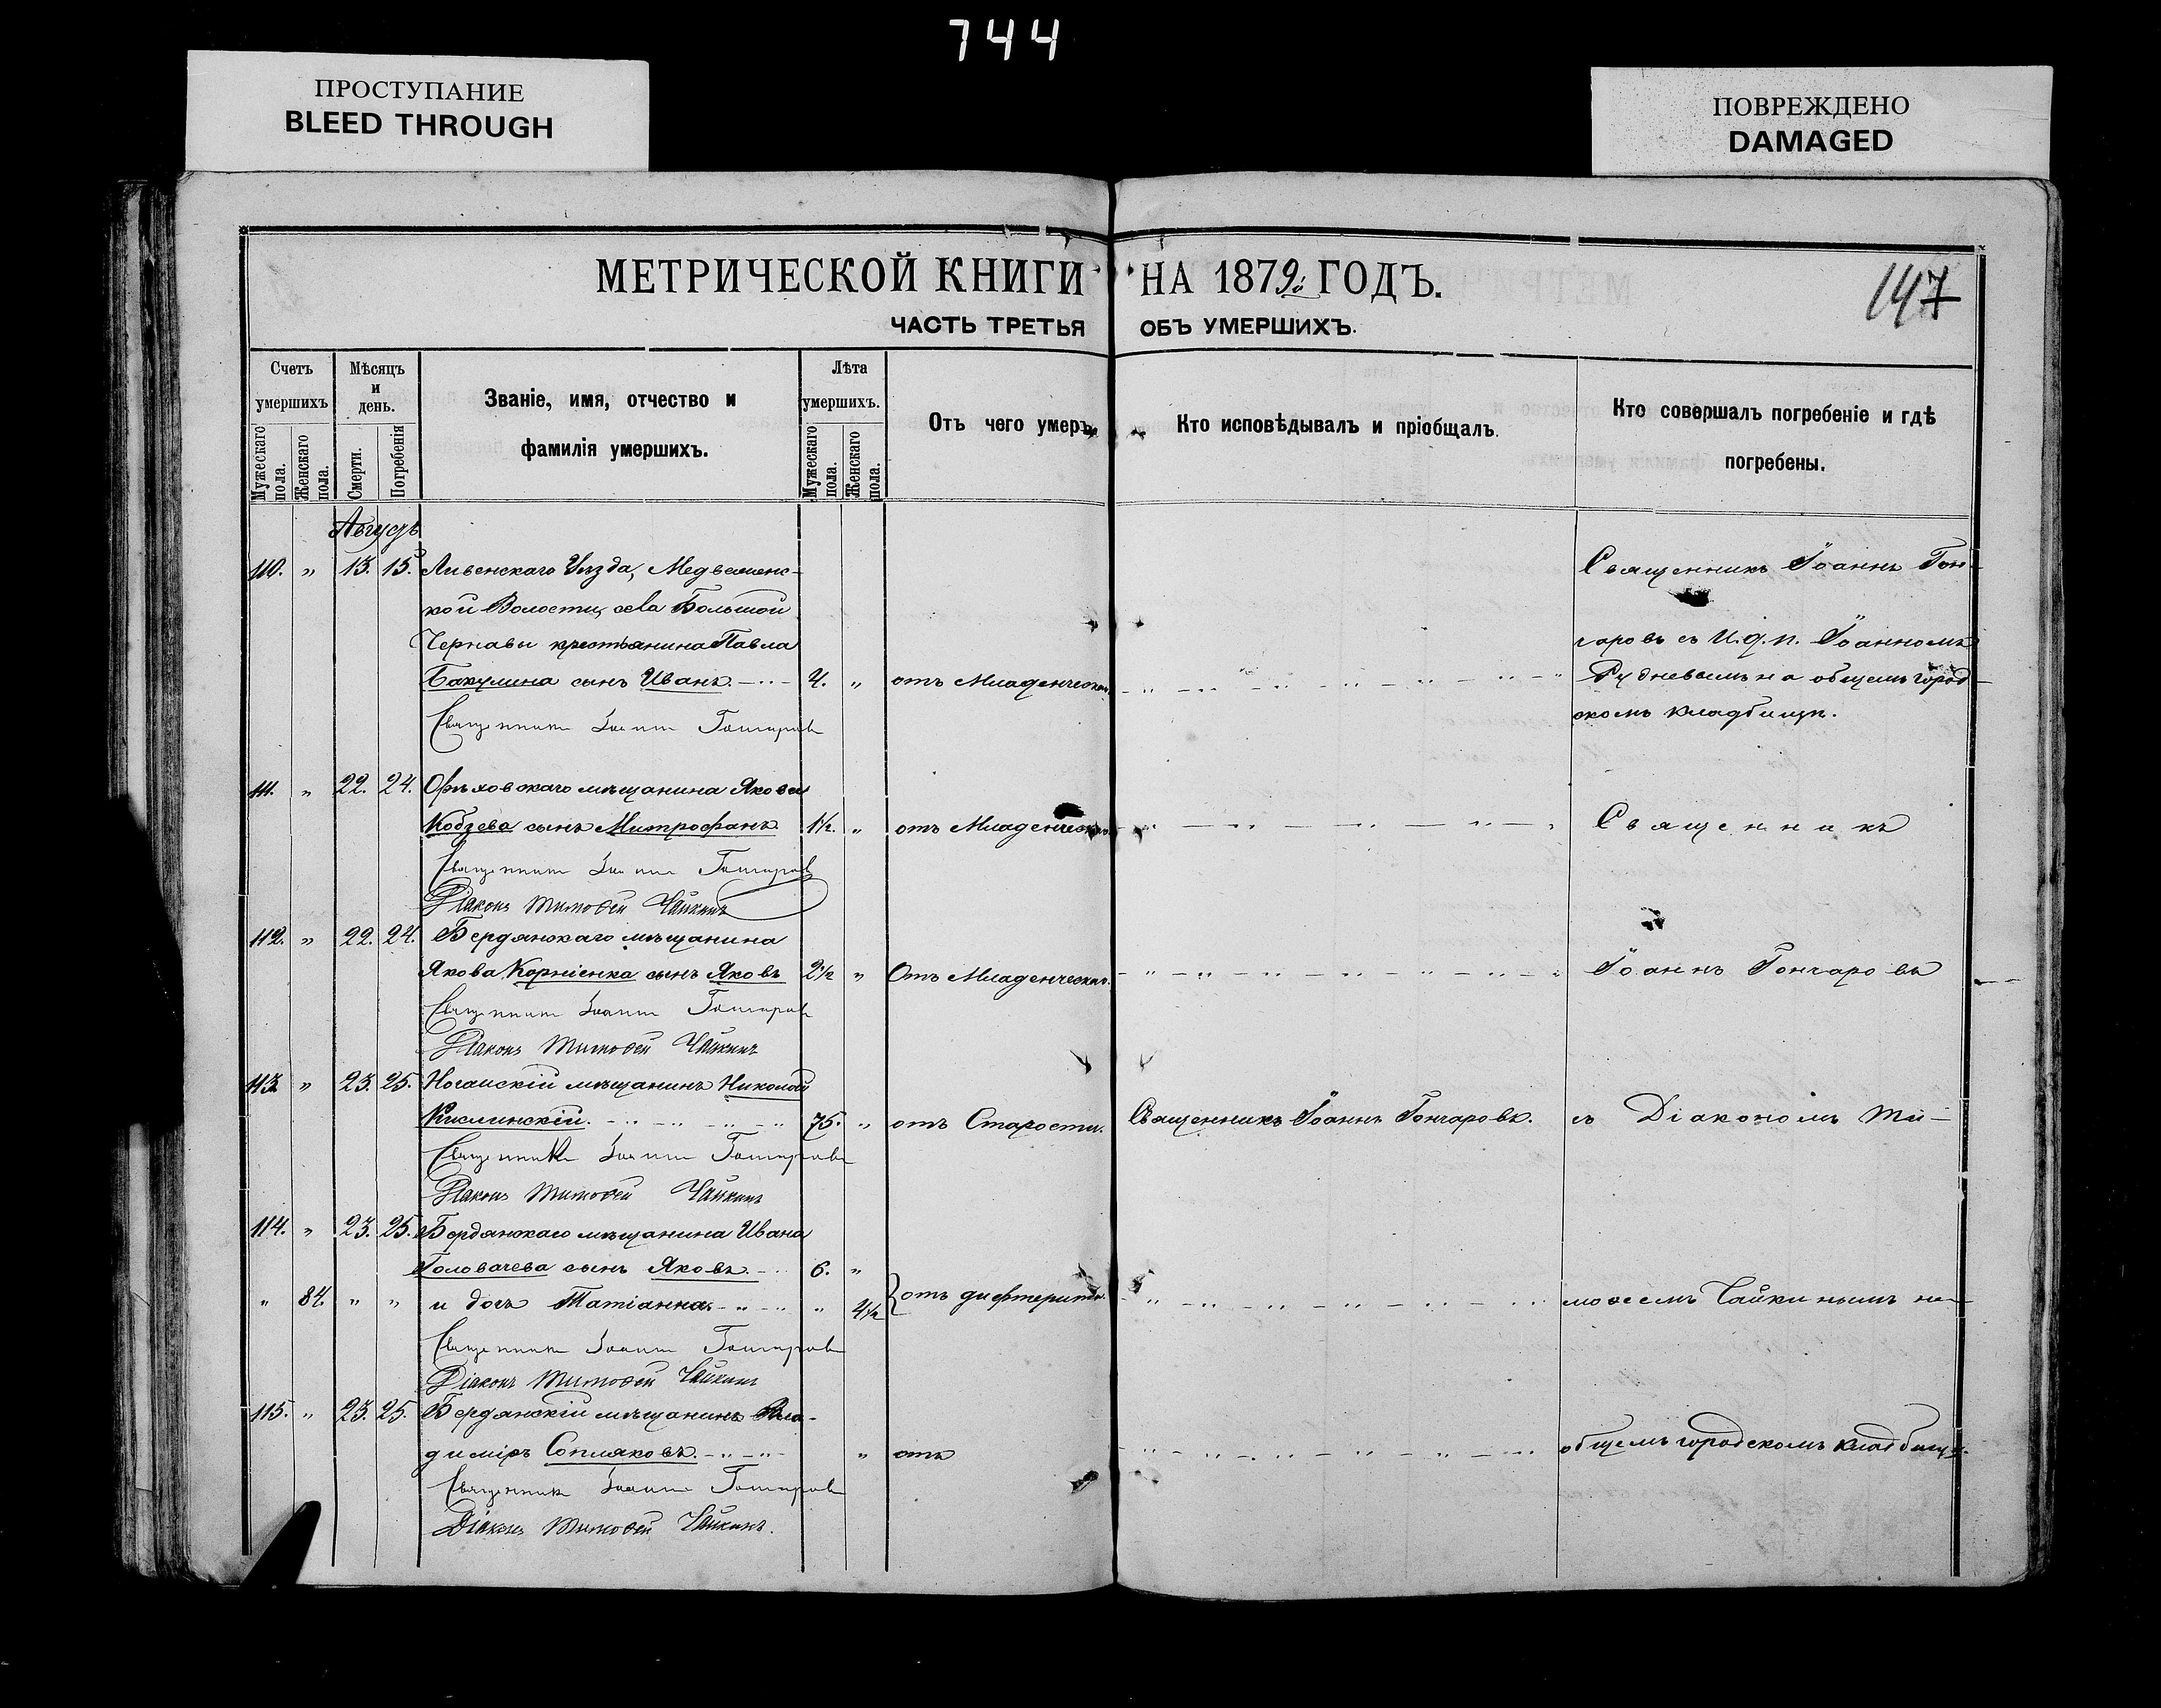 744
ПРОСТУПАНИЕ
BLEED THROUGH
ПОВРЕЖДЕНО
DAMAGED
МЕТРИЧЕСКОЙ КНИГИ НА 1879. ГОДЪ.
147
ЧАСТЬ ТРЕТЬЯ ОБЪ УМЕРШИХЪ.
Счетъ умершихъ
Мужескаго пола.
Женскаго пола.
Мѣсяцъ и день.
Смерти.
Погребенія
Званіе, имя, отчество и
фамилія умершихъ.
Лѣта умершихъ.
Мужескаго пола.
Женскаго пола.
Отъ чего умеръ.
Кто исповѣдывалъ и пріобщалъ.
Кто совершалъ погребеніе и гдѣ
погребены.
Августъ
110. " 13. 15. Ливенскаго Уѣзда, Медвеженс- Священникъ Іоаннъ Гон-
кой Волости, села Большой
Чернавы крестьянина Павла чаровъ съ И.д.п. Іоанномъ
Бакулина сынъ Иванъ. 4. " отъ Младенческой Рудневымъ на общемъ город-
скомъ кладбищѣ.
Священникъ Іоаннъ Гончаровъ
111. " 22. 24. Орѣховскаго мѣщанина Якова
Кобзева сынъ Митрофанъ. 1½. " отъ Младенческой Священникъ
Священникъ Іоаннъ Гончаровъ
Діаконъ Тимоѳей Чайкинъ
112. " 22. 24. Бердянскаго мѣщанина
Якова Корніенка сынъ Яковъ 2½ " Отъ Младенческой. Іоаннъ Гончаровъ
Священникъ Іоаннъ Гончаровъ
Діаконъ Тимоѳей Чайкинъ
113. " 23. 25. Ногайскій мѣщанинъ Николай
Кислинскій. 75. " отъ Старости. Священникъ Іоаннъ Гончаровъ. съ Діакономъ Ти-
Священникъ Іоаннъ Гончаровъ
Діаконъ Тимоѳей Чайкинъ
114. " 23. 25. Бердянскаго мѣщанина Ивана
Головачева сынъ Яковъ. 6. "
" 84. " " и дочь Татіанна. " 4½ отъ дифтерита. моѳеемъ Чайкинымъ на
Священникъ Іоаннъ Гончаровъ
Діаконъ Тимоѳей Чайкинъ
115. " 23. 25. Бердянскій мѣщанинъ Вла-
диміръ Сопляковъ. " отъ общемъ городскомъ кладбищѣ.
Священникъ Іоаннъ Гончаровъ
Діаконъ Тимоѳей Чайкинъ.